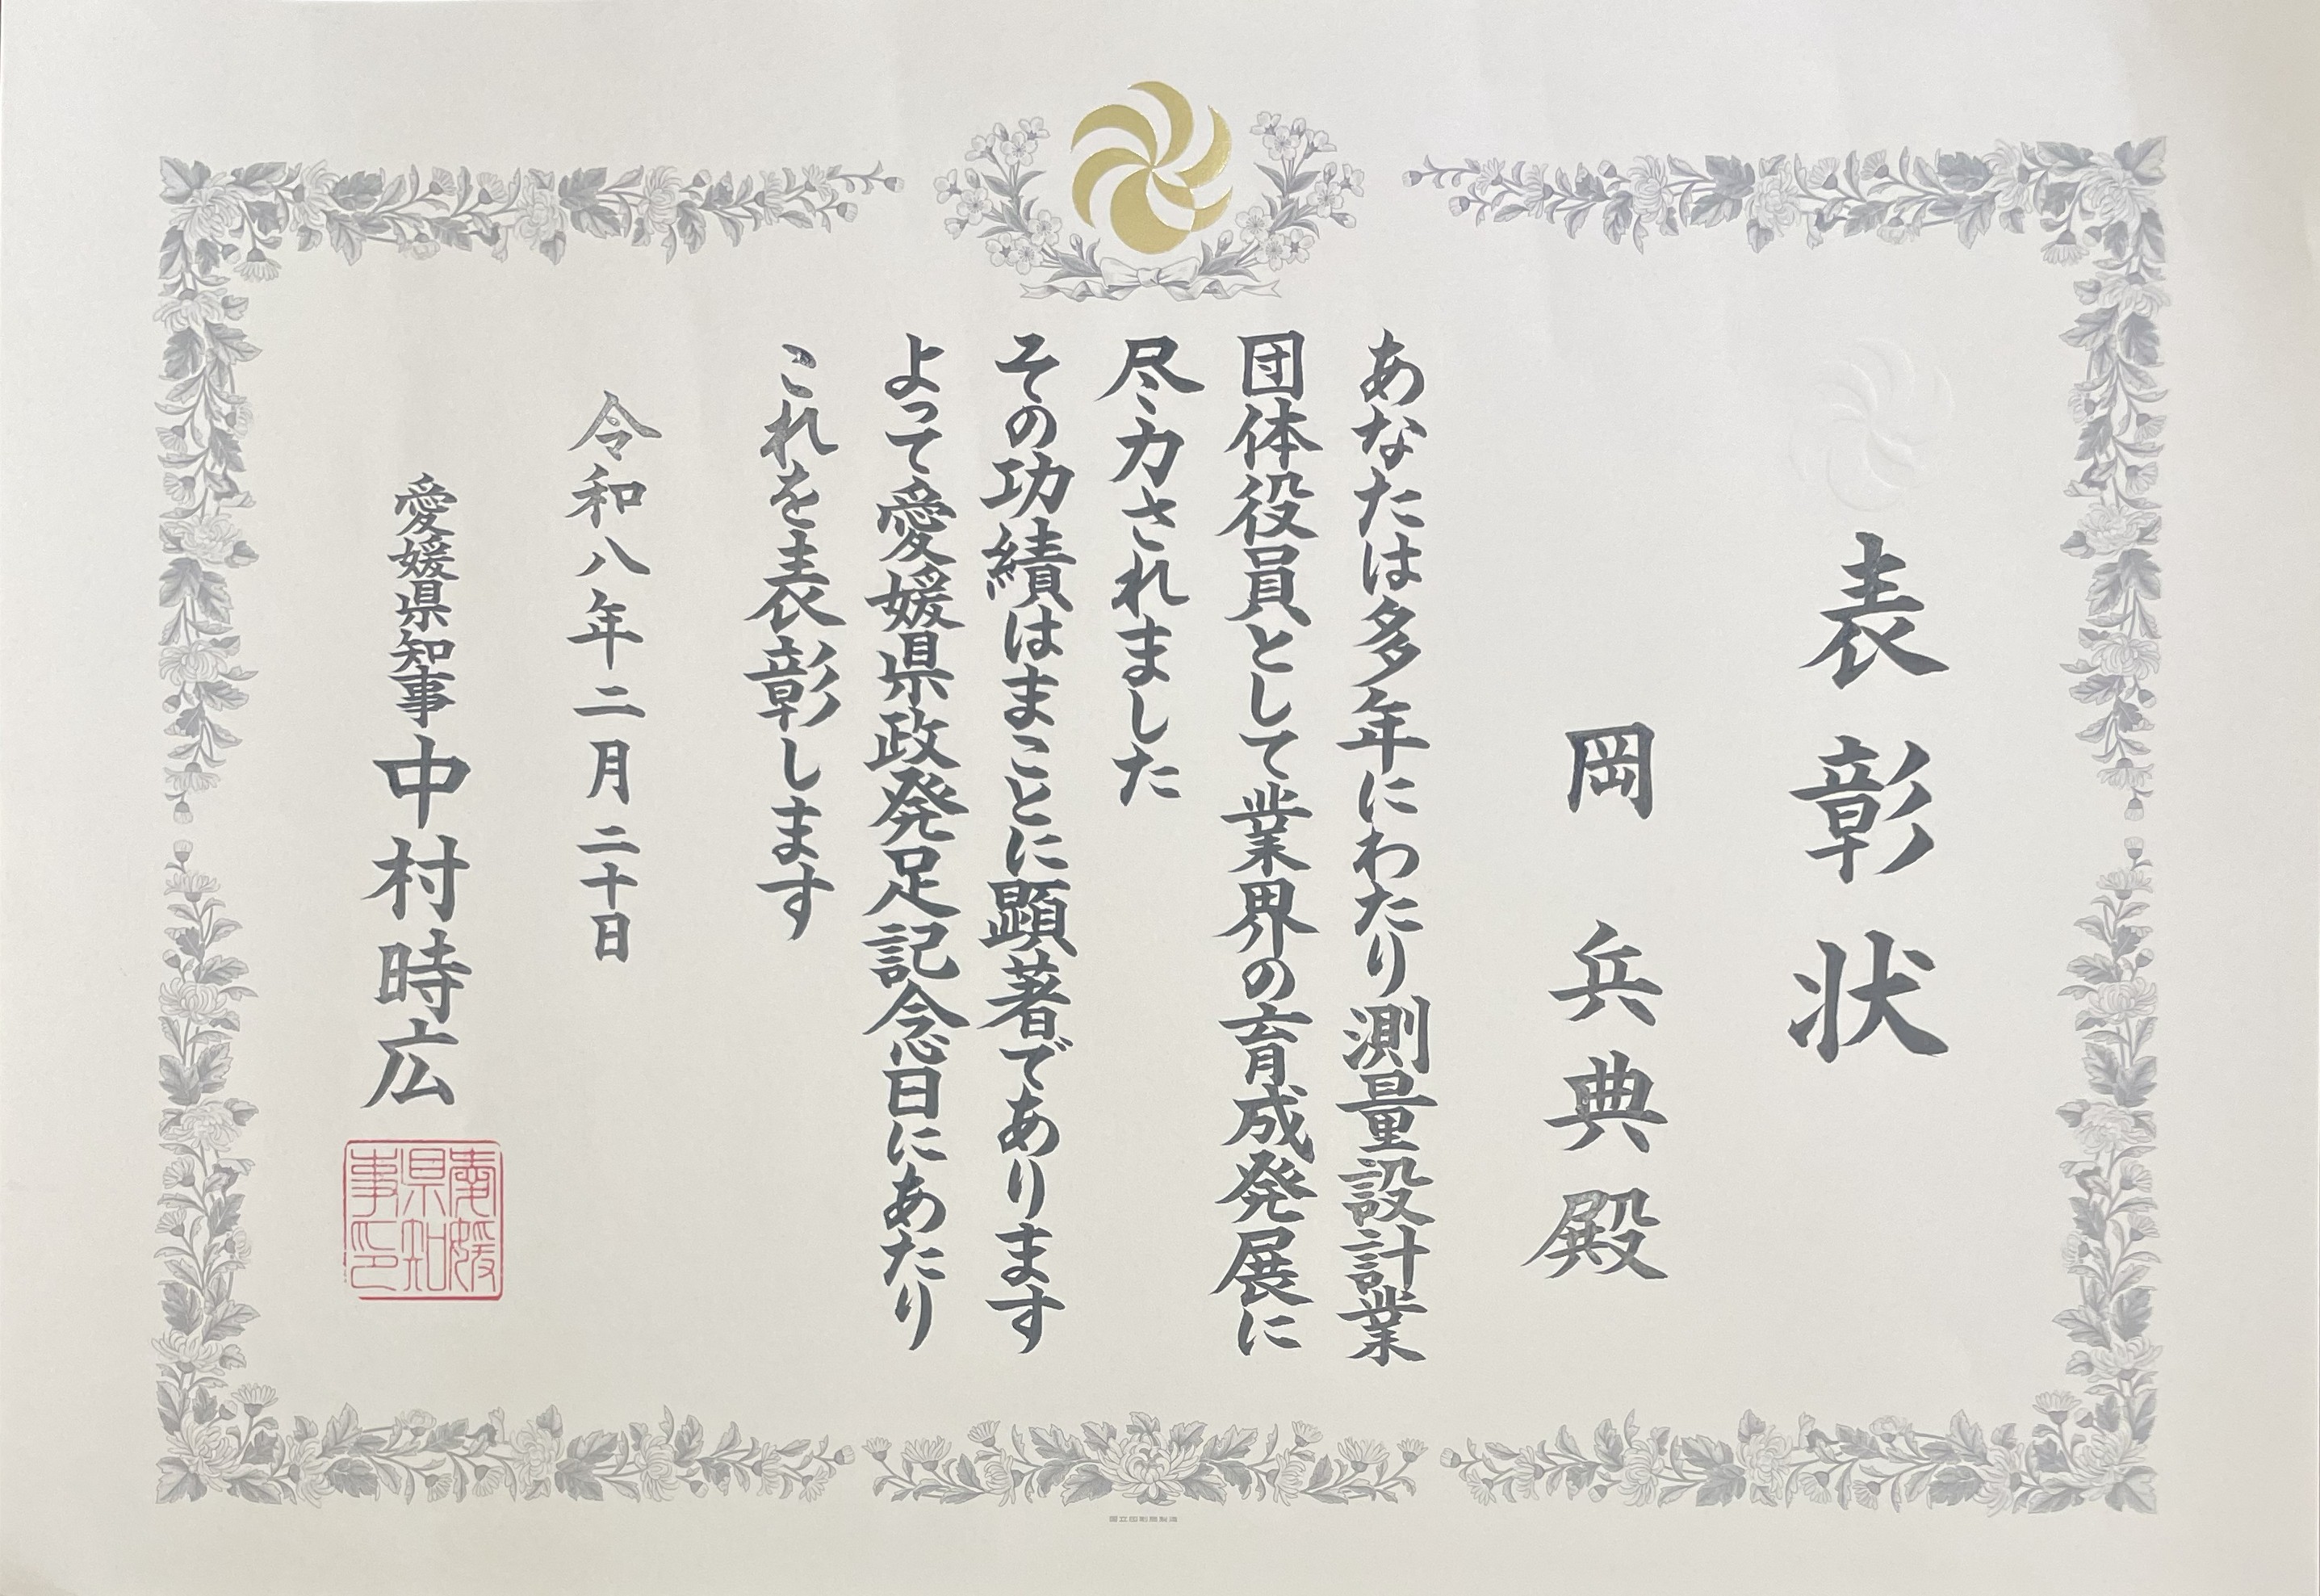 表彰状
岡 兵典殿
あなたは多年にわたり測量設計業
団体役員として業界の育成発展に
尽力されました
その功績はまことに顕著であります
よって愛媛県政発足記念日にあたり
これを表彰します
令和八年二月二十日
愛媛県知事 中村時広
愛媛
県知
事印
国立印刷局製造